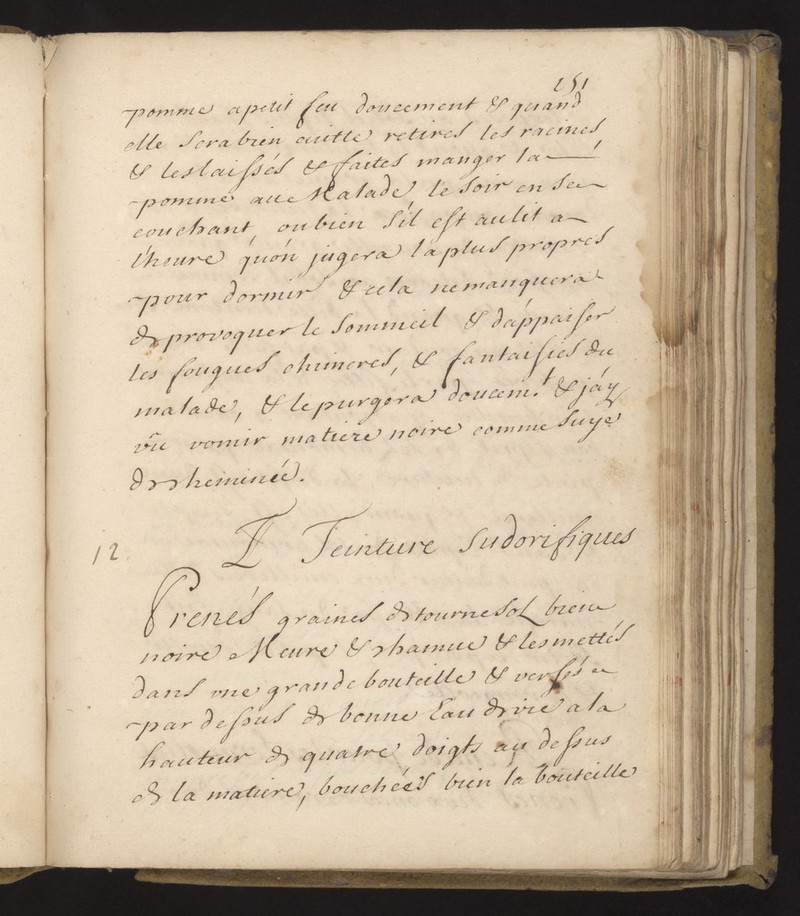 251
pomme a petit feu doucement & quand
elle sera bien cuitte retirés les racines
& les laissés & faites manger la
pomme au Malade le soir en se
couchant, ou bien s'il est au lit a
l'heure qu'on jugera la plus propres
pour dormir & cela ne manquera
de provoquer le sommeil & d'appaiser
les fougues chimeres, & fantaisies du
malade, & le purgera doucem.t & j'ay
vû vomir matiere noire comme suye
de cheminée.
12 T Teinture sudorifiques
Prenés graines de tournesol bien
noire Meure & charnue & les mettés
dans vne grande bouteille & versés
par dessus de bonne Eau de vie a la
hauteur de quatre doigts au dessus
de la matiere, bouchéés bien la bouteille